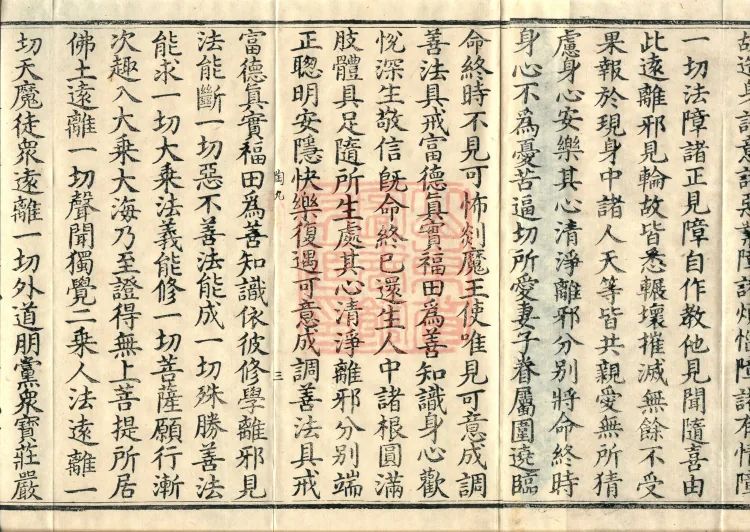 一切法障諸正見障自作教他見聞隨喜由
此遠離邪見輪故皆悉輾壞摧滅無餘不受
果報於現身中諸人天等皆共親愛無所猜
慮身心安樂其心清淨離邪分別將命終時
身心不爲憂苦逼切所愛妻子眷屬圍遶臨
命終時不見可怖琰魔王使唯見可意成調
善法具戒富德眞實福田爲善知識身心歡
悅深生敬信旣命終已還生人中諸根圓滿
肢體具足隨所生處其心清淨離邪分別端
正聦明安隱快樂復遇可意成調善法具戒
九 三
富德眞實福田爲善知識依彼修學離邪見
法能斷一切惡不善法能成一切殊勝善法
能求一切大乘法義能修一切菩薩願行漸
次趣入大乘大海乃至證得無上菩提所居
佛土遠離一切聲聞獨覺二乘人法遠離一
切天魔徒衆遠離一切外道朋黨衆寶莊嚴